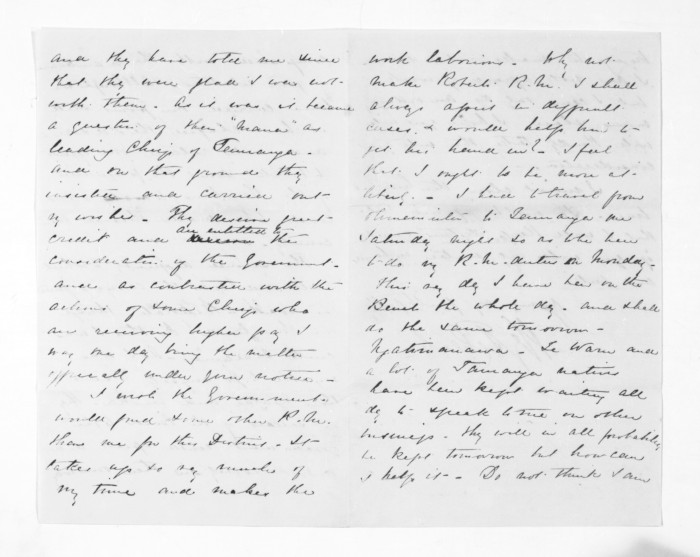 and they have told me since
that they were glad I was not
with them. As it was it became
a question of their "mana" as
leading Chiefs of Tauranga -
and on that ground they
insisted and carried out
my wishes - They deserve great
credit and are entitled to the
consideration of the Government -
and as contrasted with the
actions of some Chiefs who
are receiving higher pay I
may one day bring the matter
officially under your notice -
I wish the Government
would find some other R.M.
than me for this District - It
takes up so very much of
my time and makes the
work laborious - Why not
make Roberts R.M. I shall
always assist in difficult
cases & would help him to
get his hand in? I feel
that I ought to be more at
liberty - I had to travel from
to Tauranga on
Saturday night so as to be here
to do my R.M. duties on Monday -
This very day I have been on the
Bench the whole day - and shall
do the same tomorrow -
Ngatimanawa - Te Wani and
a lot of Tauranga natives
have been kept waiting all
day to speak to me on other
business - they will in all probability
be kept tomorrow but how can
I help it - Do not think I am